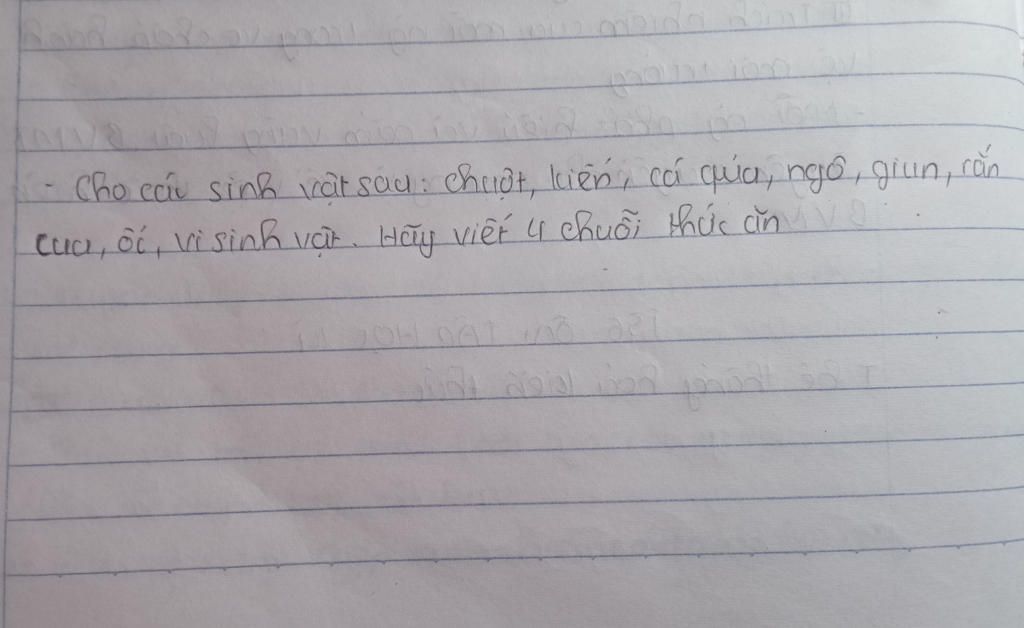 - Cho các sinh vật sau: chuột, kiến, cá quả, ngô, giun, rắn
cua, ốc, vi sinh vật. Hãy viết 4 chuỗi thức ăn